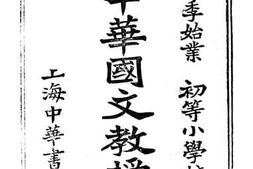 季始業 初等小學
中華國文教授
上海中華書